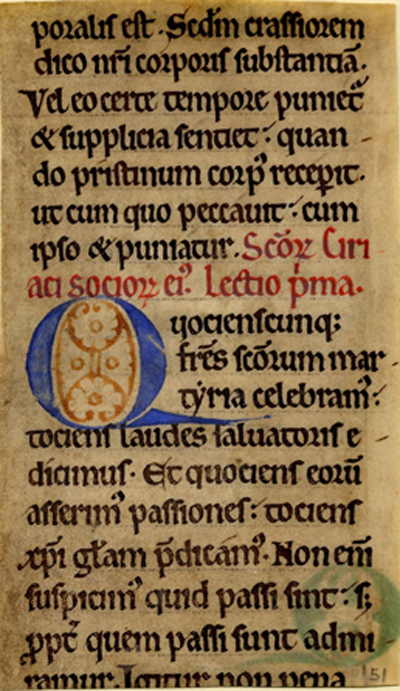 poralis est. Sedm̄ crassiorem
dico nr̄i corporis substantiā.
Vel eo certe tempore puniet᷑
& supplicia sentiet: quan-
do pristinum corpꝰ recepit.
ut cum quo peccauit: cum
ipso & puniatur. Scōꝝ Ciri
aci socioꝝ eiꝰ. Lectio p̄ma.
Quocienscunqꝫ
fr̄es scōrum mar-
tyria celebramꝰ:
tociens laudes saluatoris e-
dicimus. Et quociens eorū
asserimꝰ passiones: tociens
xp̄i gl̄am p̄dicamꝰ. Non em̄
suspicimꝰ quid passi sint: sꝫ
ꝓpt̄ quem passi sunt admi-
ramur. Igitur non pena
51